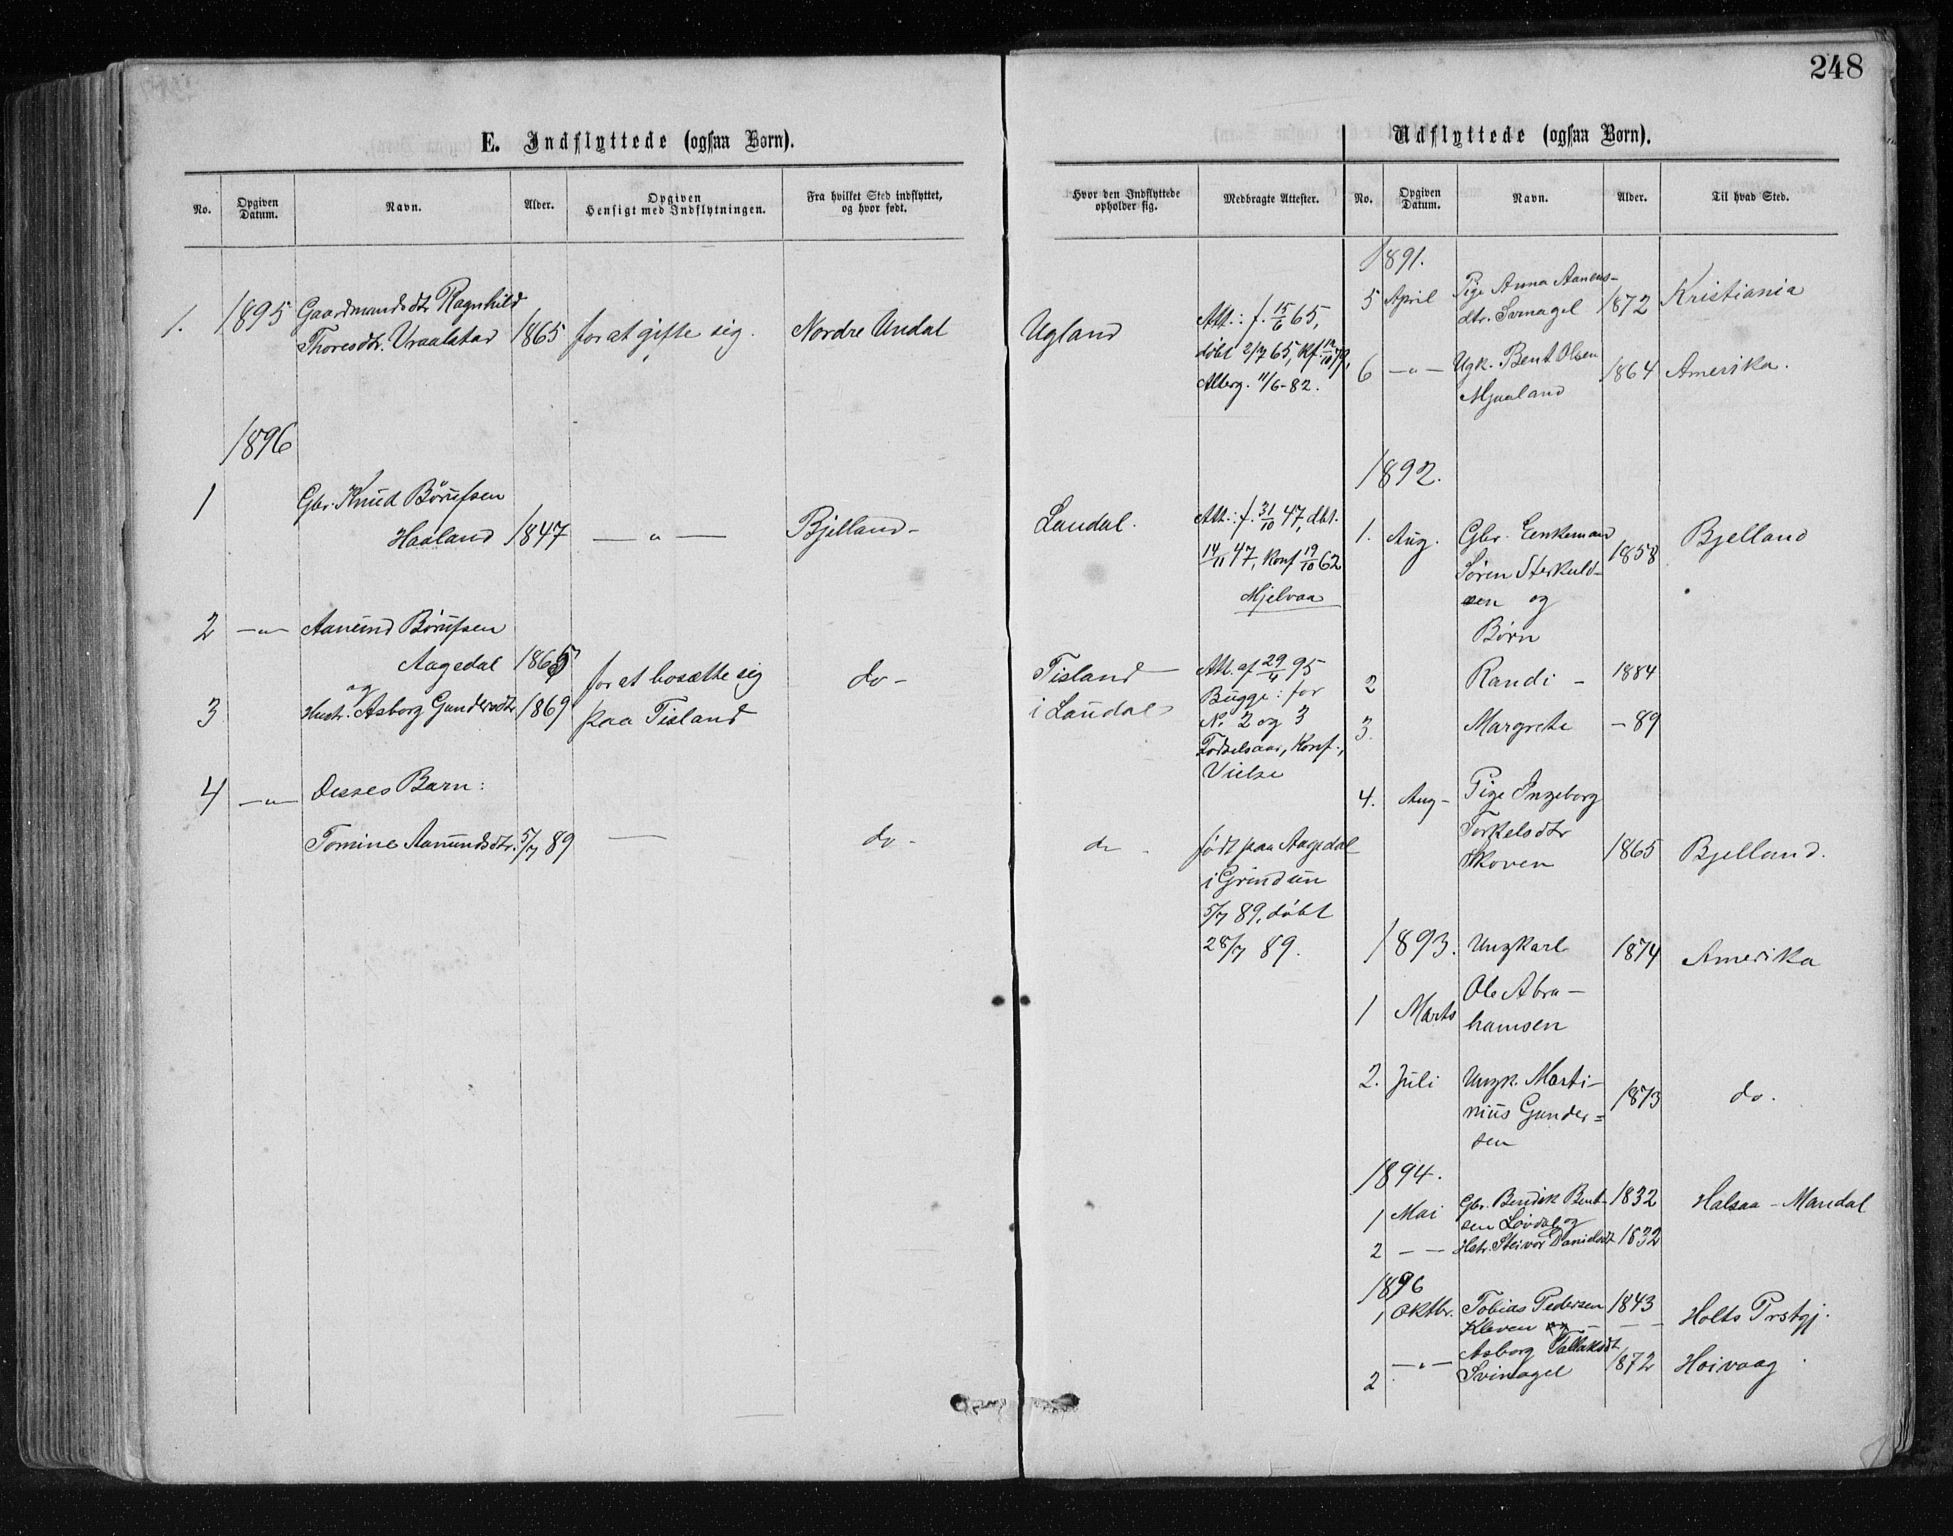 248
E. Indflyttede (ogsaa Børn).
No.
Opgiven Datum.
Navn.
Alder.
Opgiven Hensigt med Indflytningen.
Fra hvilket Sted indflyttet, og hvor født.
Hvor den Indflyttede opholder sig.
Medbragte Attester.
1. 1895 Gaardmandsdtr Ragnhild
Thoresdtr. Vraalstad 1865 for at gifte sig. Nordre Undal Ugland
Att.: f. 15/6 65,
døbt 2/7 65, Kf. 12/10 79,
Afberg. 11/6-82.
1896
1 Gbr. Knud Börufsen
Haaland 1847 — " — Bjelland - Laudal.
Att.: f. 31/10 47, dbt.
14/11 47, Konf 19/10 62
Mjelvaa
2 —"— Aanund Börufsen
Aagedal 1865 for at bosætte sig do - Tisland
og
3 Hustr. Asborg Gundersdtr 1869 paa Tisland i Laudal
Att. af 29/4 95
Bugge: for
No. 2 og 3
Fødselsaar, Konf.,
Vielse
4 —"— Disses Barn:
Tomine Aanundsdtr. 5/7 89 — do - do -
født paa Aagedal
i Grindum
5/7 89, døbt
28/7 89.
Udflyttede (ogsaa Børn).
No.
Opgiven Datum.
Navn.
Alder.
Til hvad Sted.
1891.
5 April Pige Anna Aanens-
dtr. Svinagel 1872 Kristiania
6 —"— Ugk. Bent Olsen 1864 Amerika.
Mjaaland
1892.
1. Aug. Gbr. Enkemand 1858 Bjelland
Søren Sterkuld-
sen og
Børn
2 Randi - 1884
3. Margrete - 89
4. Aug- Pige Ingeborg
Torkelsdtr
Skoven 1865 Bjelland.
1893. Ungkarl 1874 Amerika
Ole Abra-
1 Marts hamsen
2. Juli Ungk. Marti-
nius Gunder= 1873 do.
sen
1894.
1 Mai Gbr. Bendik Bent- 1832 Halsaa - Mandal
sen Løvdal og
2 — — Hstr. Steivor Danielsdt 1832
1896
1 Oktbr. Tobias Pedersen 1843 Holts Prstgj.
Kleven
Asborg Tallaksdt
2 —"— Svinagel 1872 Høivaag